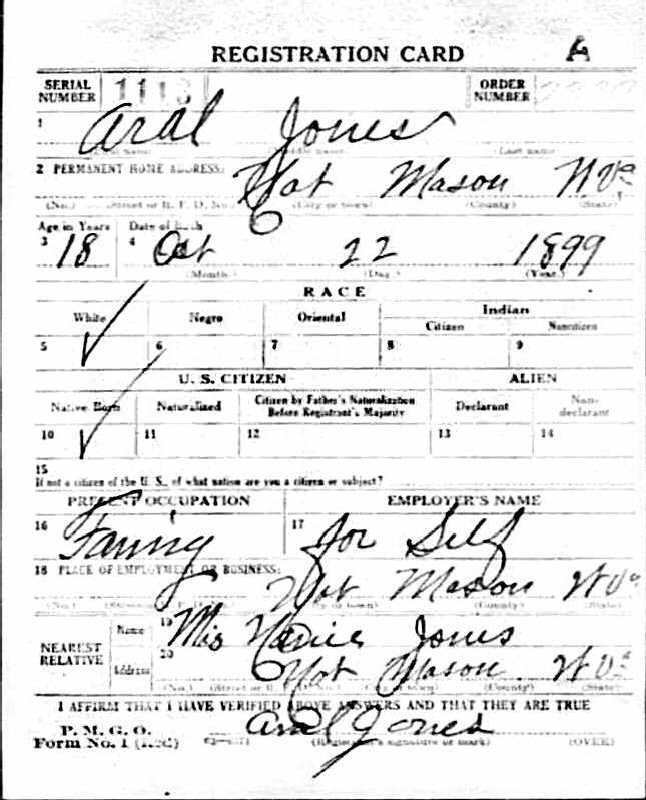 REGISTRATION CARD A
SERIAL NUMBER 1113 ORDER NUMBER
1 Aral Jones
2 PERMANENT HOME ADDRESS: Nat Mason WVa
(No.) (Street or R. F. D. No.) (City or town) (County) (State)
Age in Years Date of Birth
3 18 4 Oct 22 1899
(Month.) (Day.) (Year.)
RACE
White Negro Oriental Indian
Citizen Noncitizen
5 6 7 8 9
U. S. CITIZEN ALIEN
Native Born Naturalized Citizen by Father's Naturalization Before Registrant's Majority Declarant Non-declarant
10 11 12 13 14
15
If not a citizen of the U. S., of what nation are you a citizen or subject?
PRESENT OCCUPATION EMPLOYER'S NAME
16 Faming 17 for Self
18 PLACE OF EMPLOYMENT OR BUSINESS: Nat Mason WVa
(No.) (City or town) (County) (State)
NEAREST RELATIVE
Name 19 Jones
Address 20 Nat Mason WVa
(No.) (Street or R. F. D. No.) (City or town) (County) (State)
I AFFIRM THAT I HAVE VERIFIED ABOVE ANSWERS AND THAT THEY ARE TRUE
P. M. G. O.
Form No. 1 (Red) Aral Jones
(Registrant's signature or mark) (OVER)